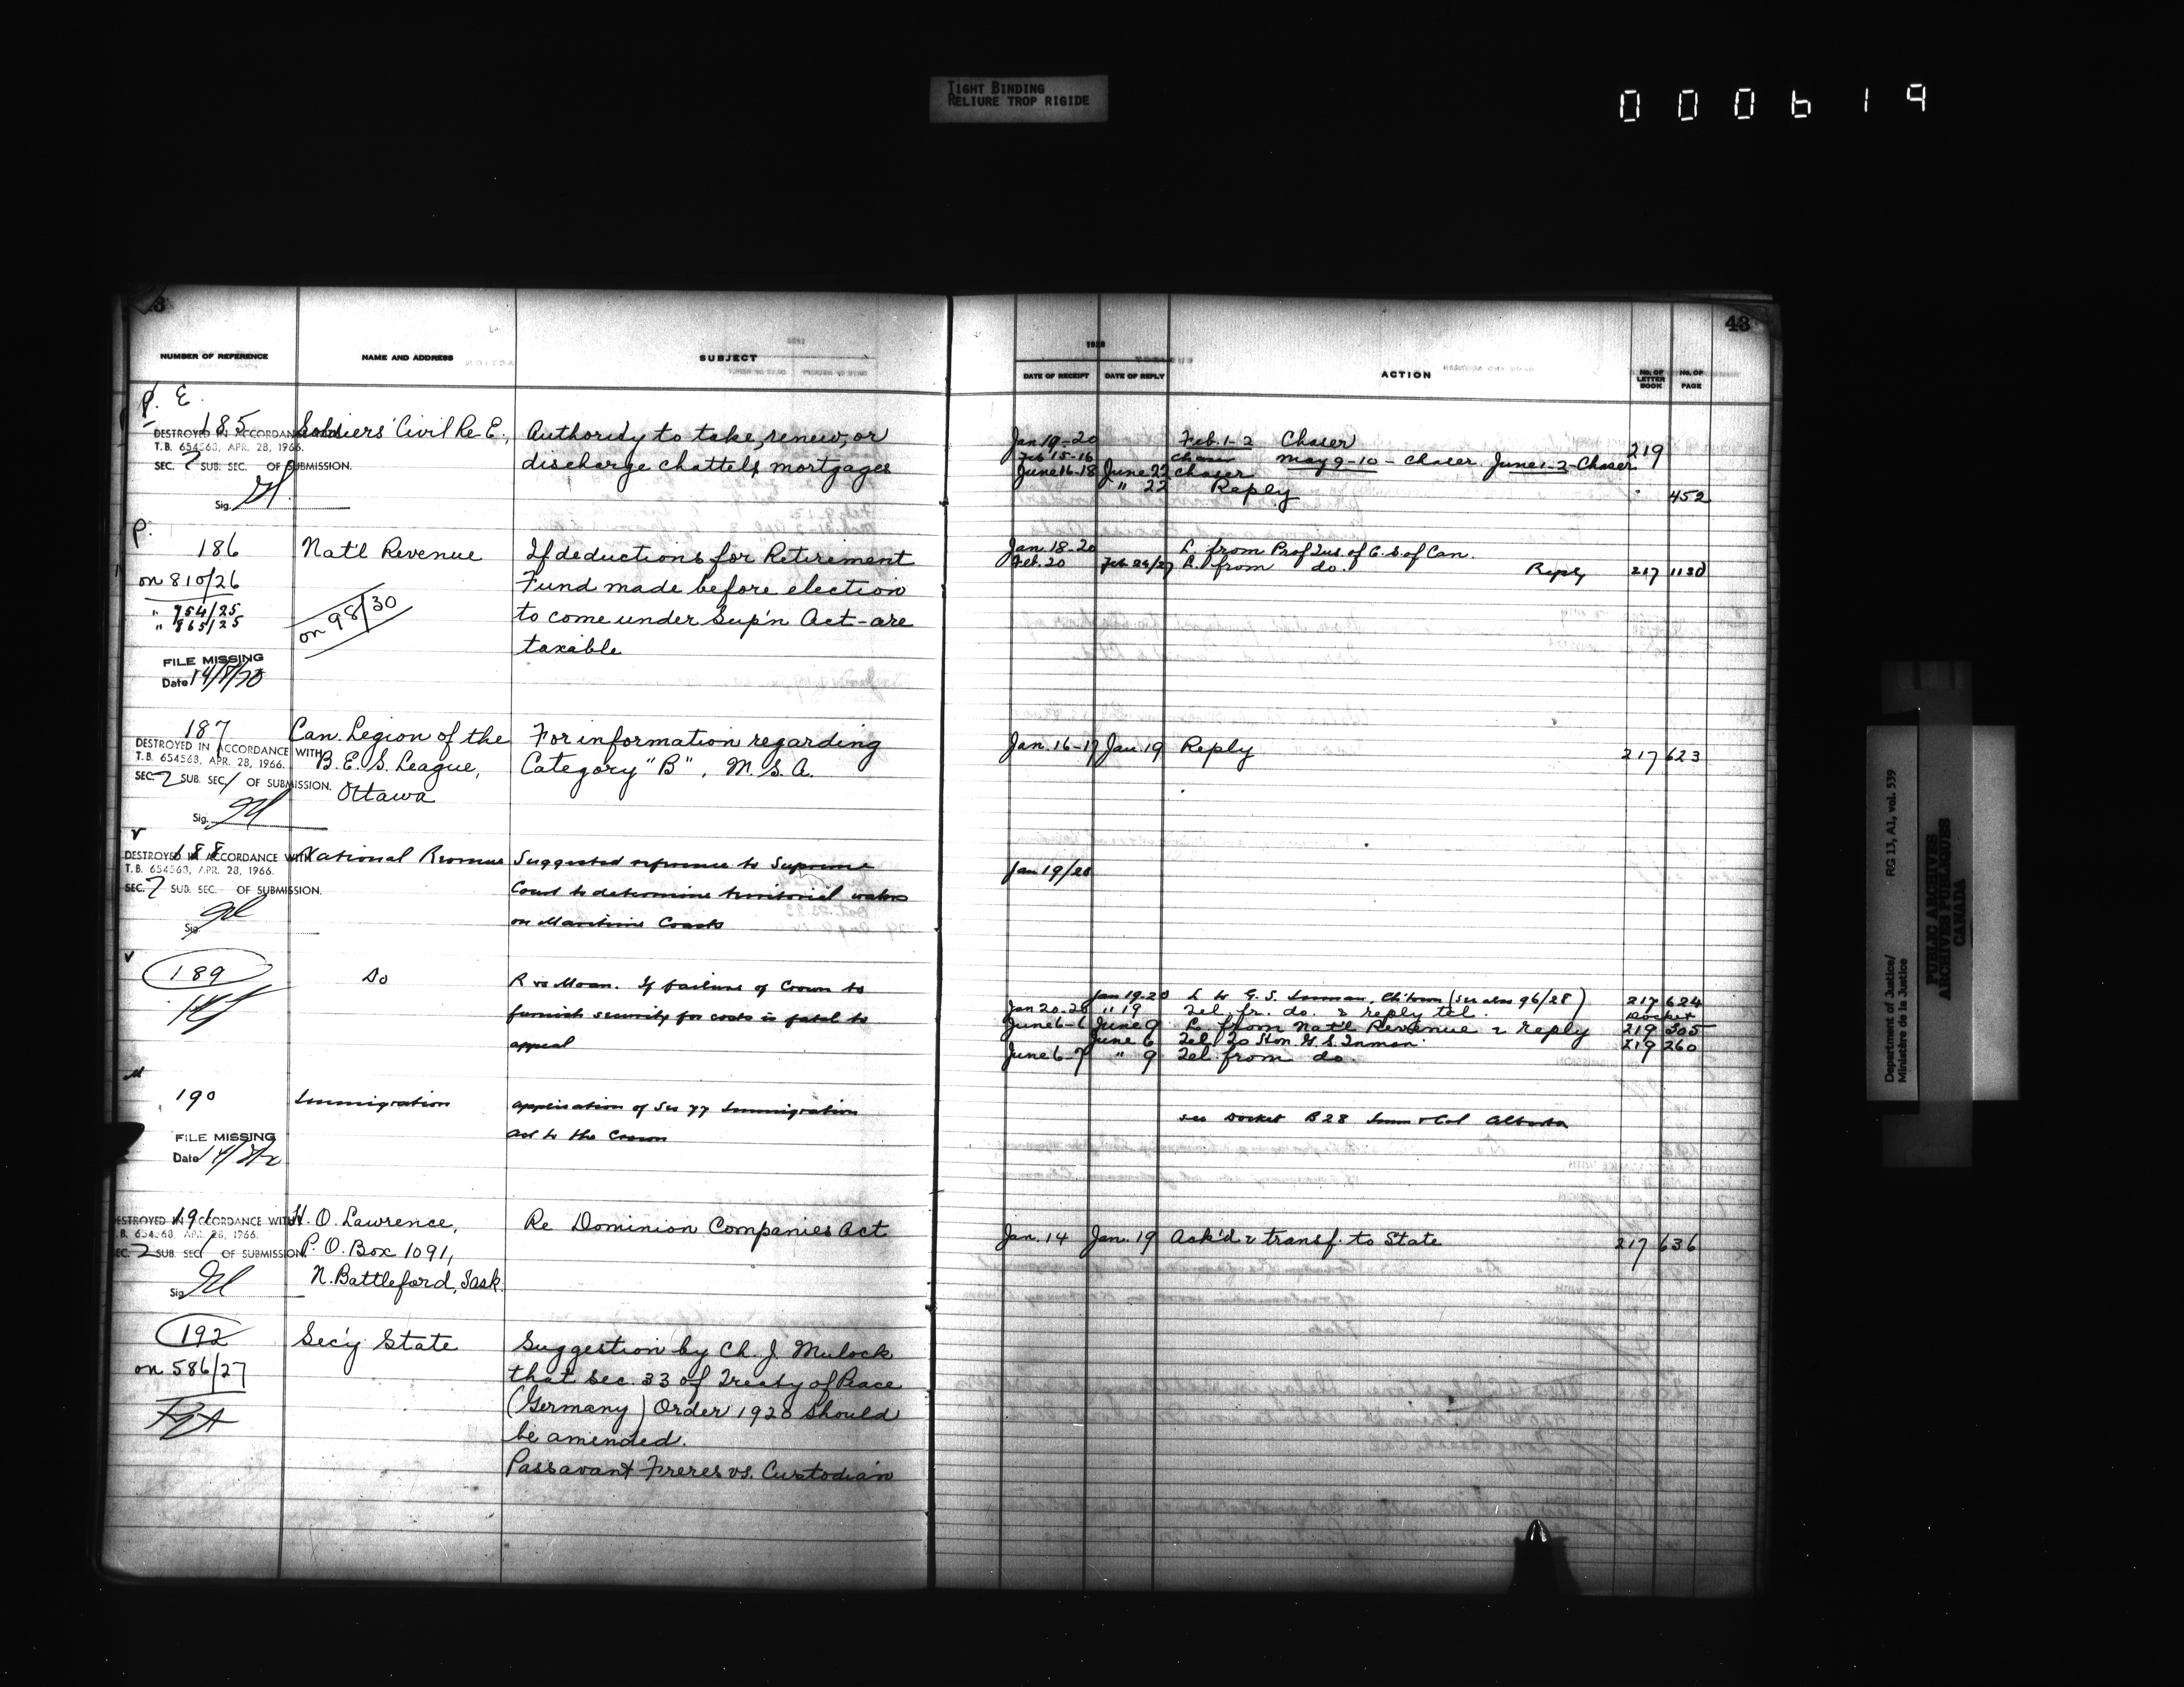 TIGHT BINDING
RELIURE TROP RIGIDE
000619
43
NUMBER OF REFERENCE
NAME AND ADDRESS
SUBJECT
1928
DATE OF RECEIPT
DATE OF REPLY
ACTION
NO. OF LETTER BOOK
NO. OF PAGE
P. E.
185
Soldiers' Civil Re-E.,
Authority to take, renew, or
discharge chattels mortgages
DESTROYED IN ACCORDANCE WITH
T.B. 654563, APR. 28, 1966.
SEC. 2 SUB. SEC. OF SUBMISSION.
Sig.
Jan 19-20 Feb. 1-2 Chaser 219
Feb 15-16 Chaser May 9-10 - Chaser June 1-2 - Chaser
June 16-18 June 22 Chaser
" 22 Reply 452
P.
186
Nat'l Revenue
If deductions for Retirement
Fund made before election
to come under Sup'n Act - are
taxable
on 810/26
" 954/25
" 865/25
on 98/30
FILE MISSING
Date
Jan. 18-20 L. from Prof Ins of C. S. of Can.
Feb. 20 L. from do. Reply 217 1130
187
Can. Legion of the
B. E. S. League,
Ottawa
For information regarding
Category "B", M. S. A.
DESTROYED IN ACCORDANCE WITH
T.B. 654563, APR. 28, 1966.
SEC. 2 SUB. SEC. 1 OF SUBMISSION.
Sig.
Jan. 16-17 Jan. 19 Reply 217 623
188
National Revenue
Suggested reference to Supreme
Court to determine territorial waters
on Maritime Coasts
DESTROYED IN ACCORDANCE WITH
T.B. 654563, APR. 28, 1966.
SEC. 2 SUB. SEC. OF SUBMISSION.
Sig.
Jan 19/28
189
Do
R vs Moan. If failure of Crown to
furnish security for costs is fatal to
appeal
Jan 19-20 L to G. S. Inman, Ch'town (See also 96/28) 217 624
Jan 20-20 " 19 Tel. fr. do. & reply tel. Docket
June 6-6 June 9 L. from Nat'l Revenue & reply 219 305
June 6 Tel. To Hon G. S. Inman. 219 260
June 6-7 " 9 Tel. from do.
190
Immigration
Application of Sec 77 Immigration
Act to the Crown
FILE MISSING
Date
See Docket B28 Imm & Col Alberta
191
H. O. Lawrence,
P. O. Box 1091,
N. Battleford, Sask.
Re Dominion Companies Act
DESTROYED IN ACCORDANCE WITH
T.B. 654563, APR. 28, 1966.
SEC. 2 SUB. SEC. 1 OF SUBMISSION.
Sig.
Jan. 14 Jan. 19 Ack'd & transf. to State 217 636
192
on 586/27
Sec'y State
Suggestion by Ch. J. Mulock
that sec. 33 of Treaty of Peace
(Germany) Order 1920 should
be amended.
Passavant Freres vs. Custodian
Department of Justice/
Ministère de la Justice
RG 13, A1, vol. 539
PUBLIC ARCHIVES
ARCHIVES PUBLIQUES
CANADA